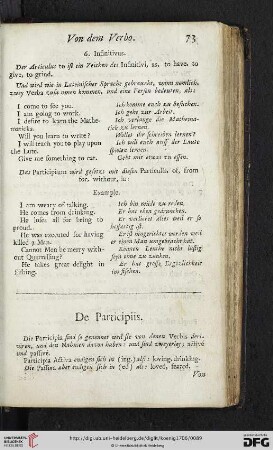 Von dem Verbo. 73
6. Infinitivus.
Der Articulus to ist ein Zeichen des Infinitivi, as, to have, to
give, to grind.
Und wird wie in Lateinischer Sprache gebraucht, wenn nemlich
zwey Verba zusammen kommen, und eine Person bedeuten, als:
I come to see you. Ich komme euch zu besuchen.
I am going to work. Ich gehe zur Arbeit.
I desire to learn the Mathe- Ich verlange die Mathema-
maticks. tic zu lernen.
Will you learn to write? Wollet ihr schreiben lernen?
I will teach you to play upon Ich will euch auf der Laute
the Lute. spielen lernen.
Give me something to eat. Gebt mir etwas zu essen.
Das Participium wird gesetzt mit diesen Particulis of, from
for, without, as:
Example.
I am weary of talking. Ich bin müde zu reden.
He comes from drinking. Er hat eben getruncken.
He loses all for being to Er verlieret alles weil er so
proud. hoffärtig ist.
He was executed for having Er ist hingerichtet worden weil
killed a Man. er einen Man umgebracht hat.
Cannot Men be merry with- Können Leuthe nicht lustig
out Quarrelling? seyn ohne zu zancken.
He takes great delight in Er hat grosse Ergetzlichkeit
fishing. im fischen.
De Participiis.
Die Participia sind so genennet weil sie von denen Verbis deri-
viren, und den Nahmen davon haben: und sind zweyerley; activa
und passiva.
Participia Activa endigen sich in (ing,) als: loving, drinking.
Die Passiva aber endigen sich in (ed) als: loved, feared.
Von
http://digi.ub.uni-heidelberg.de/diglit/koenig1706/0089
© Universitätsbibliothek Heidelberg
gefördert durch die
DFG